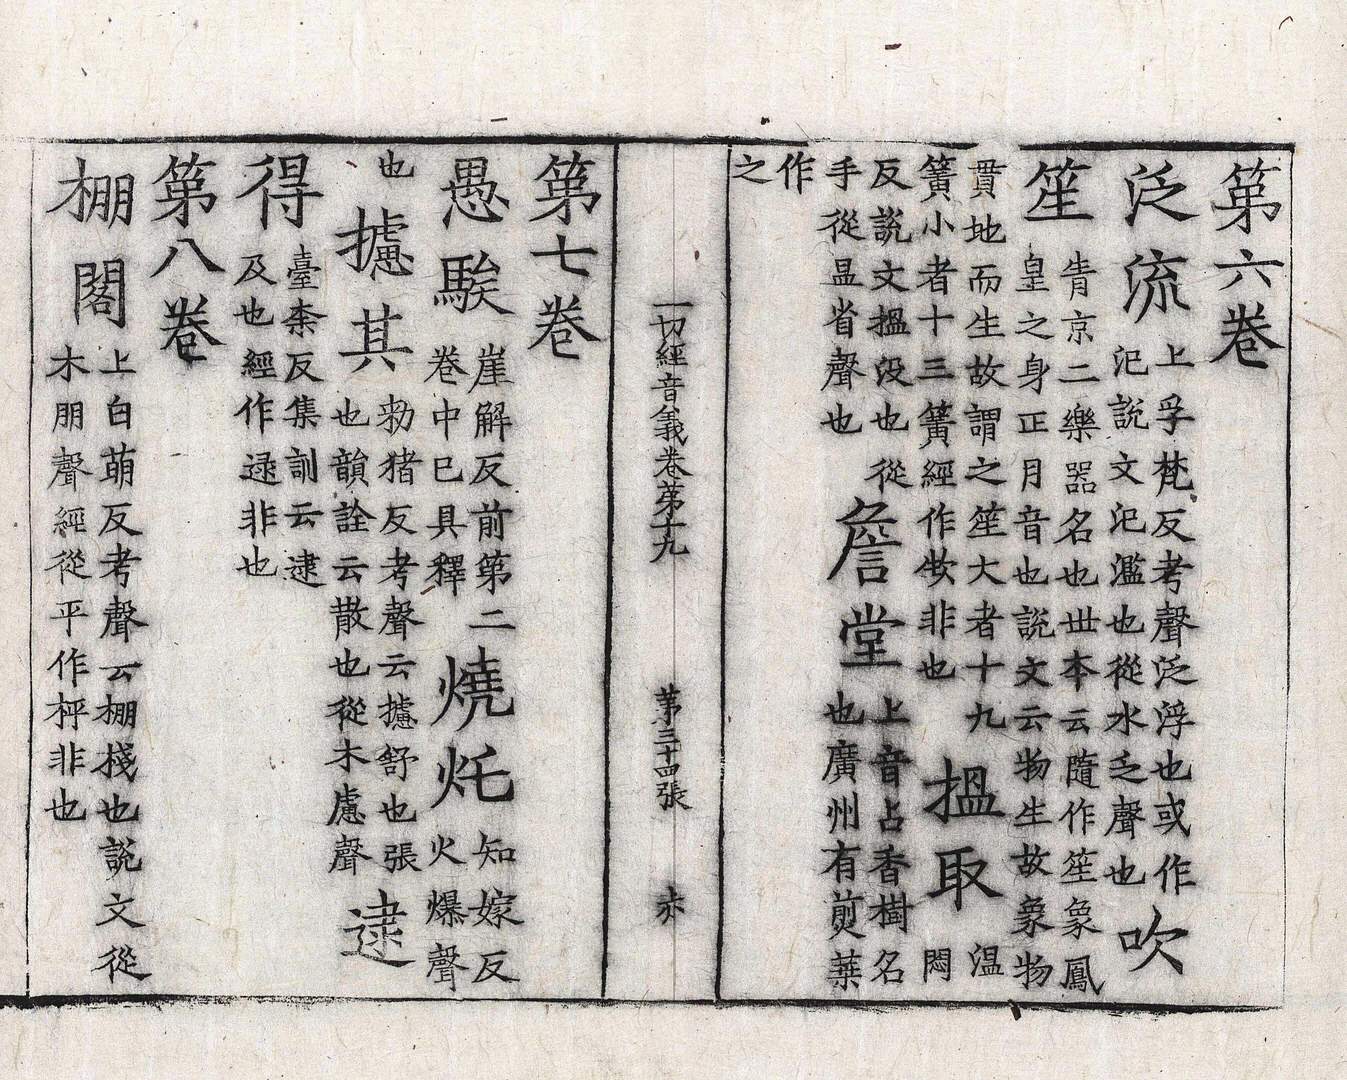 第六卷
泛流
上孚梵反考聲泛浮也或作
汜說文汜濫也從水乏聲也
吹
笙
京二樂器名也丗本云隨作笙象鳳
皇之身正月音也說文云物生故象物
貫地而生故謂之笙大者十九
簧小者十三簧經作非也
搵取
溫
悶
反說文搵没也從
手從昷省聲也
詹堂
上音占香樹名
也廣州有煎葉
作
之
一切經音義卷第十九
第三十四張
赤
第七卷
愚騃
崖解反前第二
卷中已具釋
燒灹
知嫁反
火爆聲
也
攄其
勑猪反考聲云攄舒也張
也韻詮云散也從木慮聲
逮
得
臺柰反集訓云逮
及也經作逯非也
第八卷
棚閣
上白萌反考聲云棚棧也說文從
木朋聲經從平作枰非也